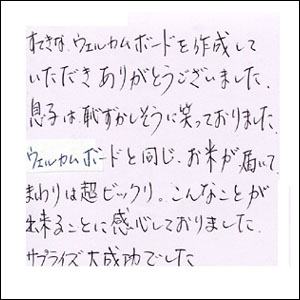 すてきな、ウェルカムボードを作成して
いただきありがとうございました。
息子は、恥ずかしそうに笑っておりました。
ウェルカムボードと同じ、お米が届いて
まわりは超ビックリ。こんなことが
出来ることに感心しておりました。
サプライズ大成功でした